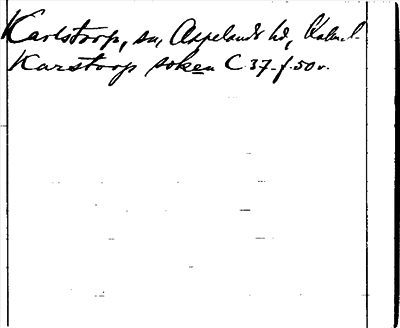 Karlstorp, sn, Aspelands hd, Kalm. l.
Karstorp soken C. 37. f. 50 v.